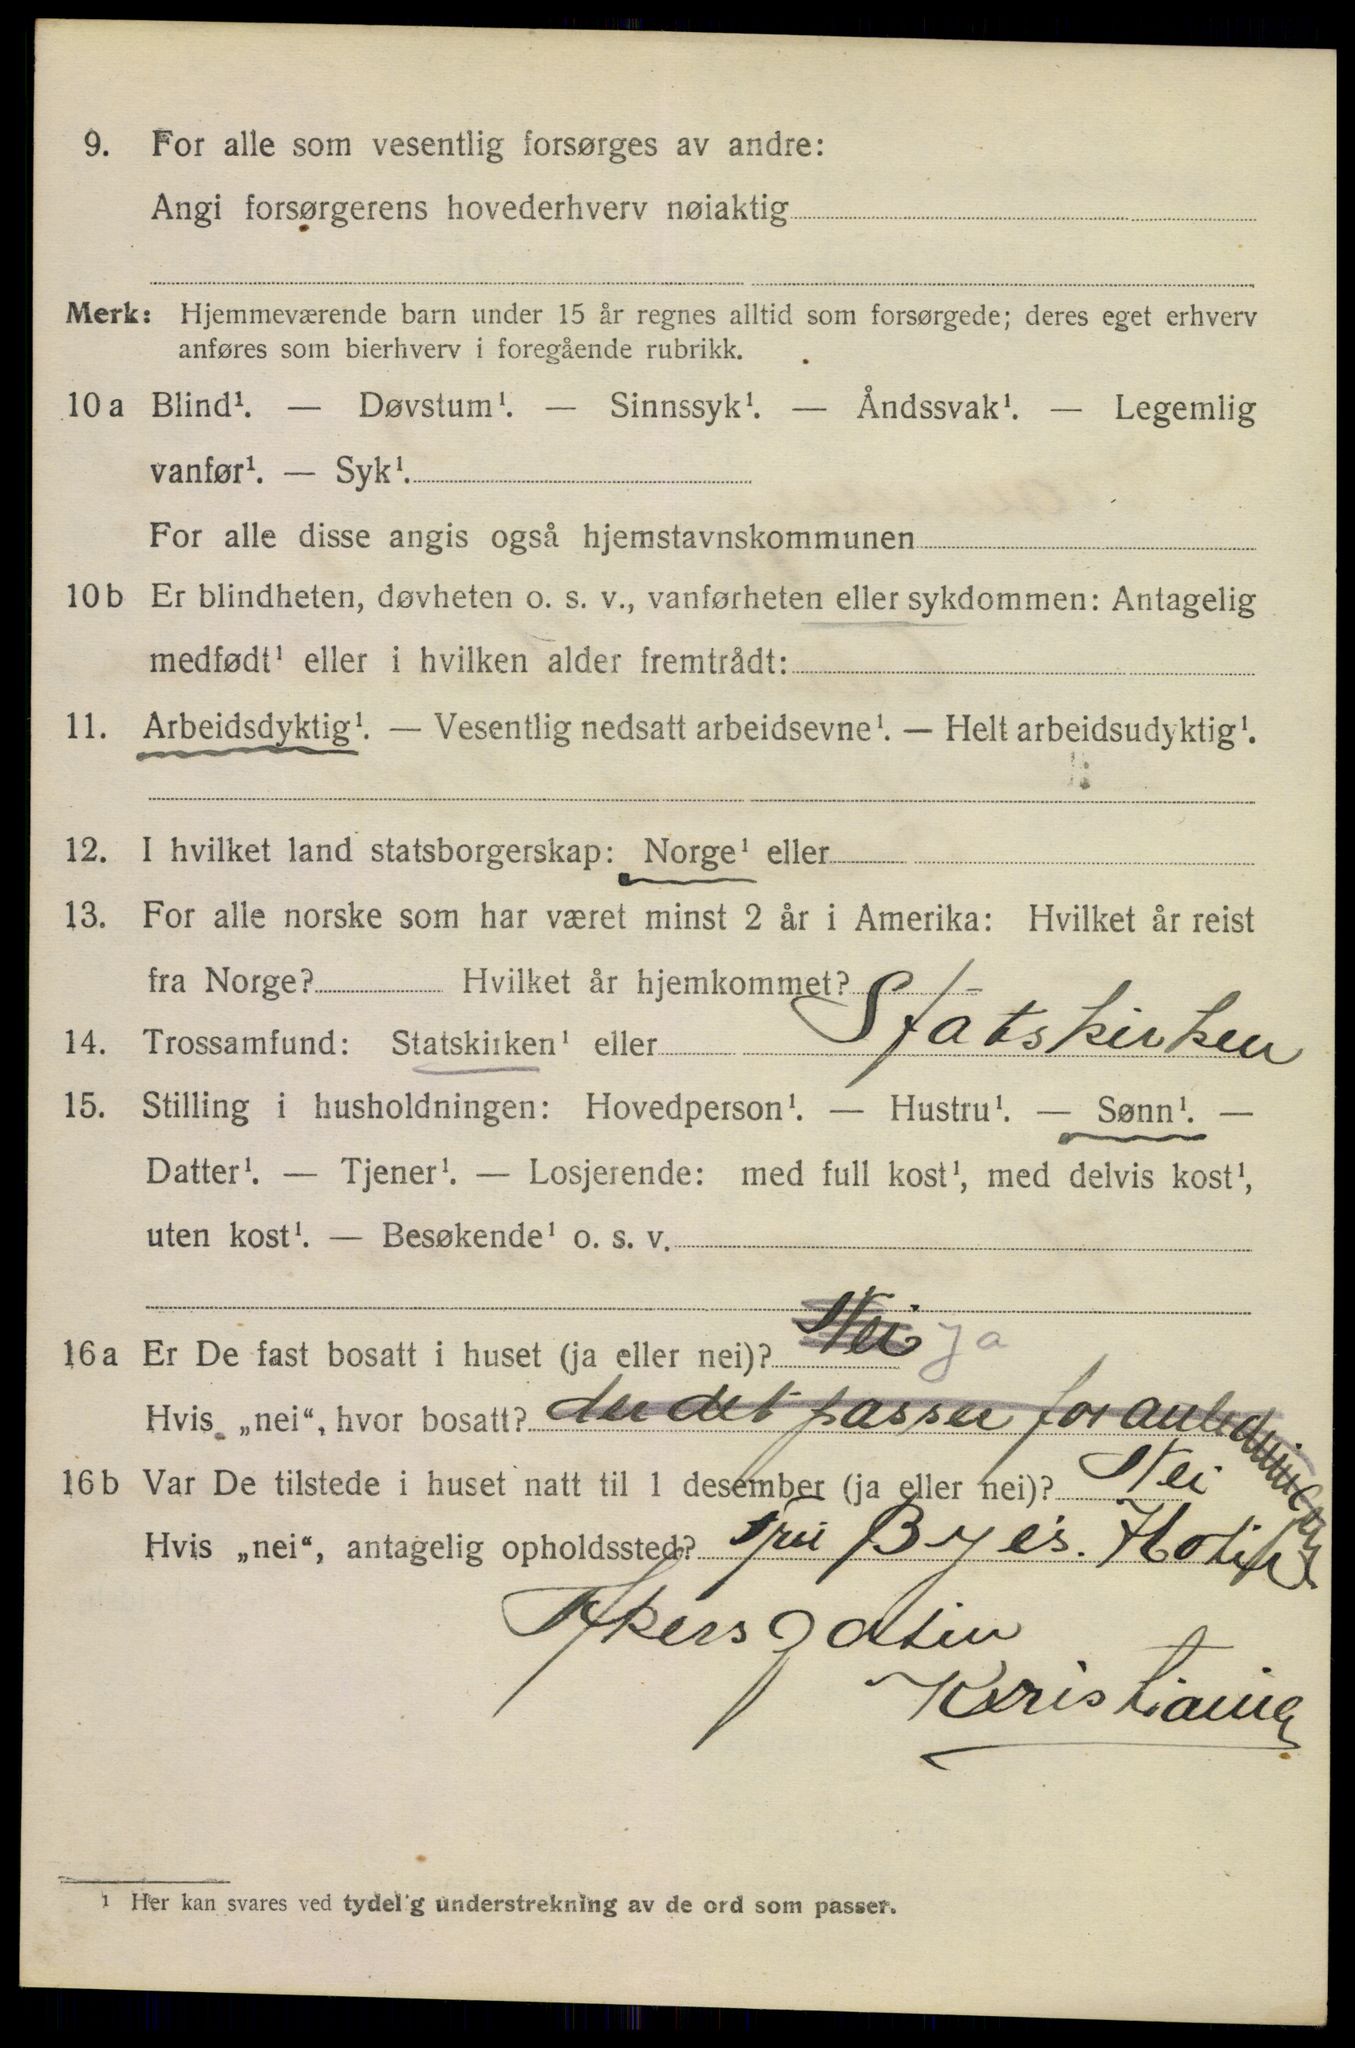 9. For alle som vesentlig forsørges av andre:
Angi forsørgerens hovederhverv nøiaktig
Merk: Hjemmeværende barn under 15 år regnes alltid som forsørgede; deres eget erhverv
anføres som bierhverv i foregående rubrikk.
10a Blind¹. — Døvstum¹. — Sinnssyk¹. — Åndssvak¹. — Legemlig
vanfør¹. — Syk¹.
For alle disse angis også hjemstavnskommunen
10b Er blindheten, døvheten o. s. v., vanførheten eller sykdommen: Antagelig
medfødt¹ eller i hvilken alder fremtrådt:
11. Arbeidsdyktig¹. — Vesentlig nedsatt arbeidsevne¹. — Helt arbeidsudyktig¹.
12. I hvilket land statsborgerskap: Norge¹ eller
13. For alle norske som har været minst 2 år i Amerika: Hvilket år reist
fra Norge? Hvilket år hjemkommet?
14. Trossamfund: Statskirken¹ eller Statskirken
15. Stilling i husholdningen: Hovedperson¹. — Hustru¹. — Sønn¹. —
Datter¹. — Tjener¹. — Losjerende: med full kost¹, med delvis kost¹,
uten kost¹. — Besøkende¹ o. s. v.
16a Er De fast bosatt i huset (ja eller nei)? Nei Ja
Hvis „nei“, hvor bosatt? der det passer for
16b Var De tilstede i huset natt til 1 desember (ja eller nei)? Nei
Hvis „nei“, antagelig opholdssted? Fru Byes. Hotel
Akersgaten
Kristiania
¹ Her kan svares ved tydelig understrekning av de ord som passer.